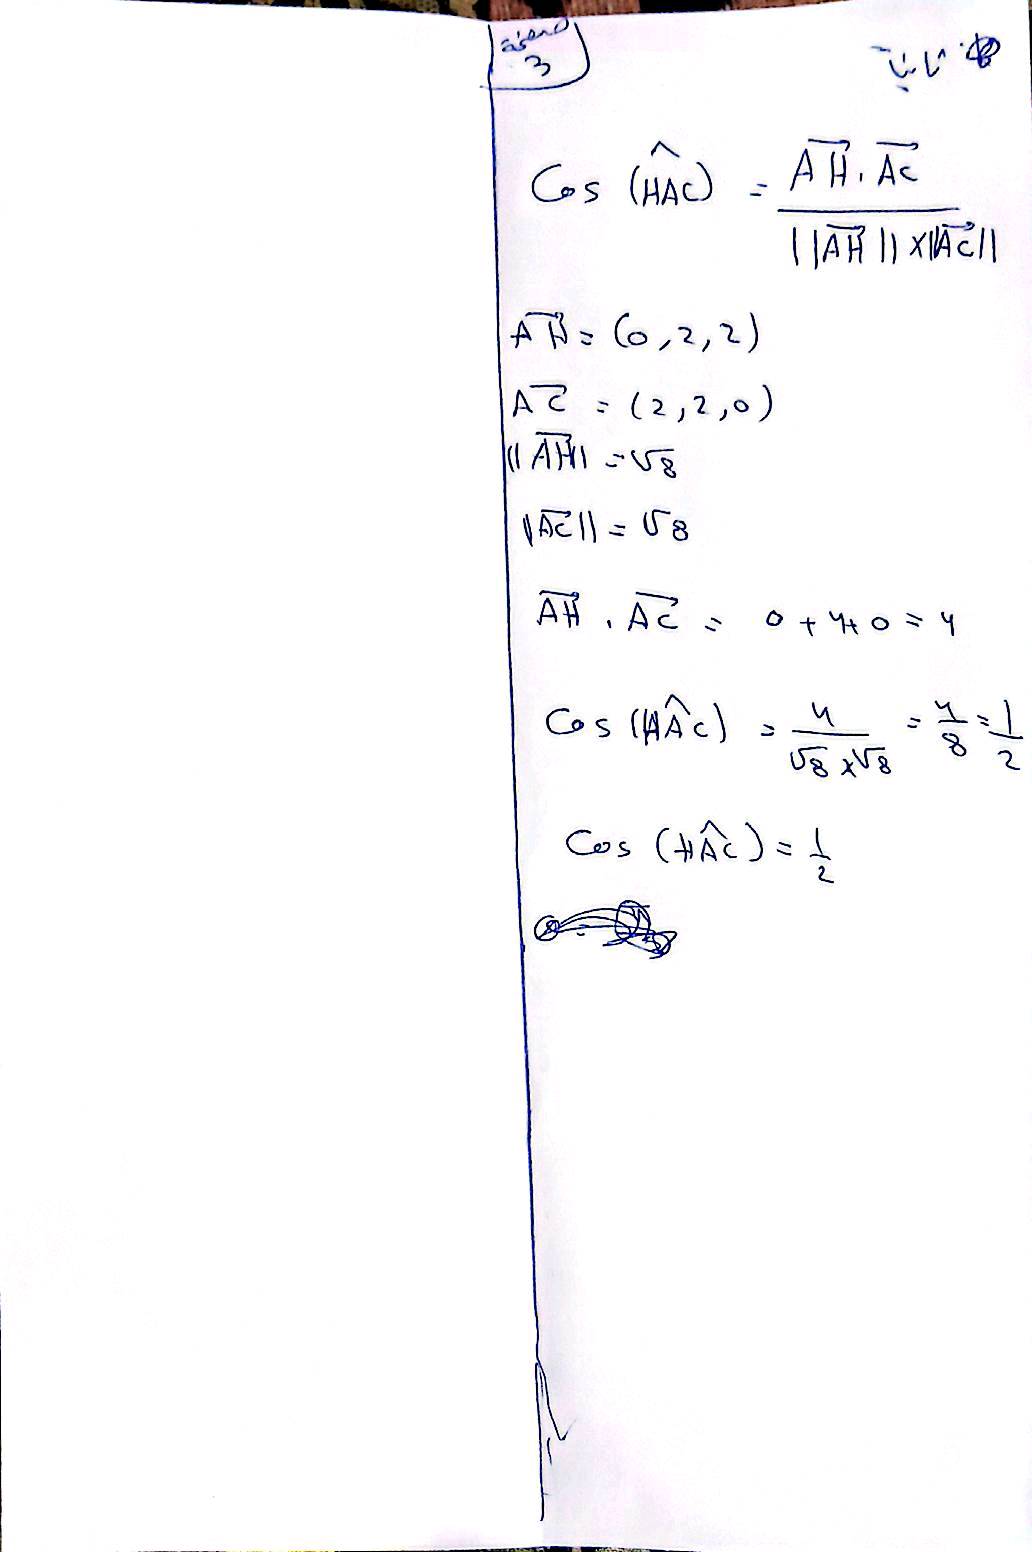 صفحة
3
ثانياً
Cos (HÂC) = \frac{\overrightarrow{AH} . \overrightarrow{AC}}{||\overrightarrow{AH}|| x ||\overrightarrow{AC}||}
\overrightarrow{AH} = (0, 2, 2)
\overrightarrow{AC} = (2, 2, 0)
||\overrightarrow{AH}|| = √8
||\overrightarrow{AC}|| = √8
\overrightarrow{AH} . \overrightarrow{AC} = 0 + 4 + 0 = 4
Cos (HÂC) = \frac{4}{√8 x √8} = \frac{4}{8} = \frac{1}{2}
Cos (HÂC) = \frac{1}{2}